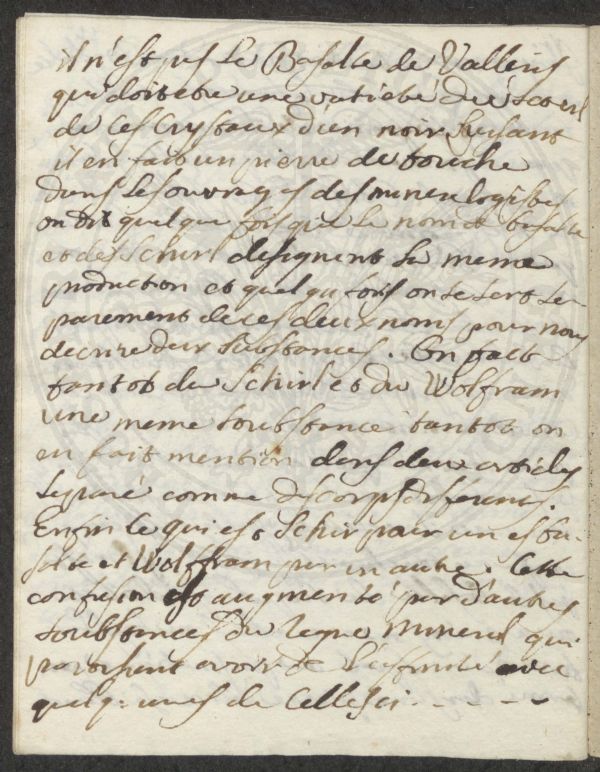 il n'est pas le Basalte de Vallerius
qui doit etre une varieté du scoerl
de Ces Crystaux d'un noir luisant
il en fait un pierre de touche
dans les ouvrages des minerelogistes
on dit quelque fois que le nom de basalte
et des Schirl designent le meme
production et quelqu fois on se sert se-
parement de ces deux noms pour nous
decrire deux substances. On fait
tantot du Schirl et du Wolfram
une meme soubstance tantot on
en fait mention dans deux articles
separé comme des corps differens.
Enfin ce qui est Schirl pour un est ba-
salte et Wolfram pour un autre. Cette
confusion est augmenté par d'autres
soubstances du regne mineral qui
paroissent avoir de l'affinité avec
quelq: unes de Celles ci - - - -